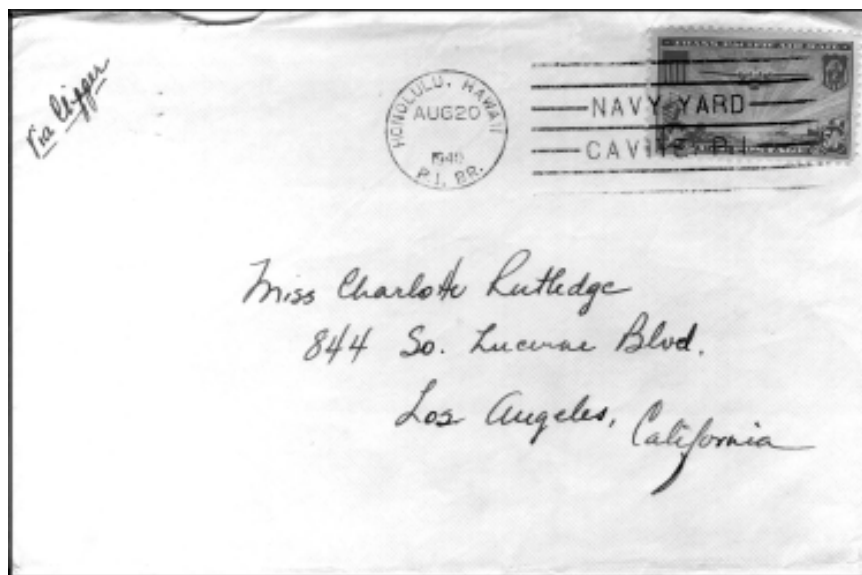 Via Clipper
HONOLULU, HAWAII
AUG 20
1940
P.I. BR.
TRANS-PACIFIC AIR MAIL
NAVY YARD
CAVITE P.I.
Miss Charlotte Rutledge
844 So. Lucerne Blvd.
Los Angeles, California